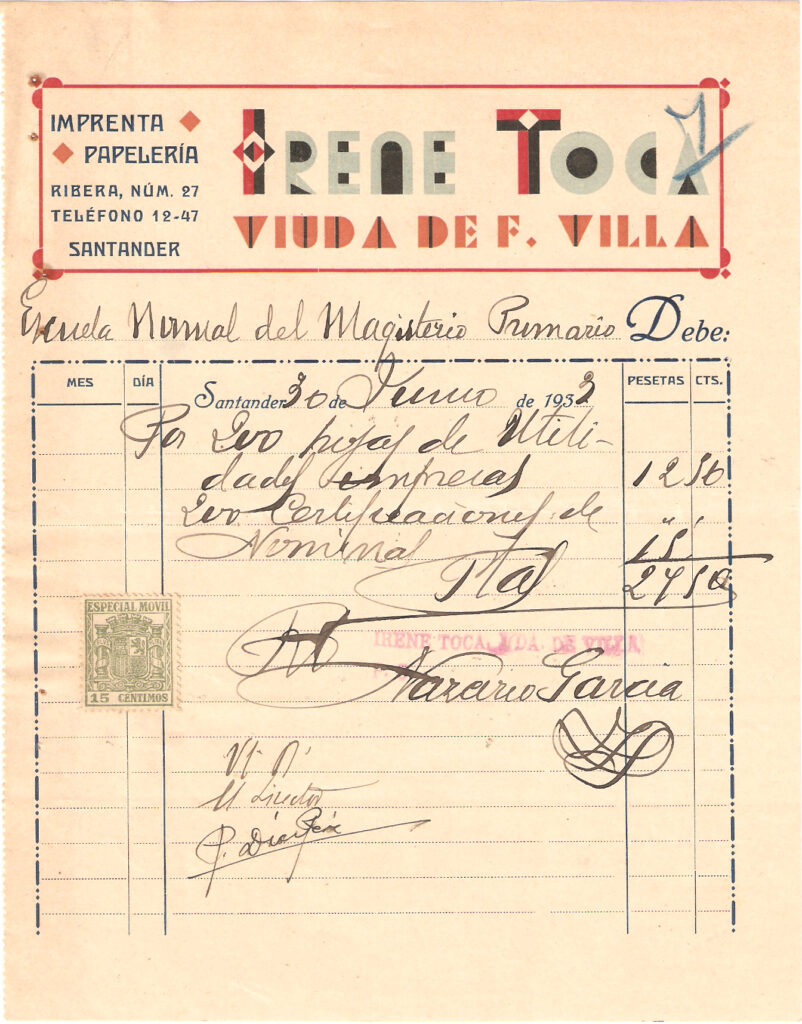 IMPRENTA
PAPELERÍA
RIBERA, NÚM. 27
TELÉFONO 12-47
SANTANDER
IRENE TOCA
VIUDA DE F. VILLA
Escuela Normal del Magisterio Primario Debe:
MES DÍA PESETAS CTS.
Santander 30 de Junio de 1932
Por 200 hojas de Utili-
dades impresas 12 50
200 Certificaciones de
Nominal 15
Ptas 27 50
ESPECIAL MÓVIL
15 CÉNTIMOS
IRENE TOCA, VDA. DE VILLA
Nazario Garcia
Vº Bº
El Director